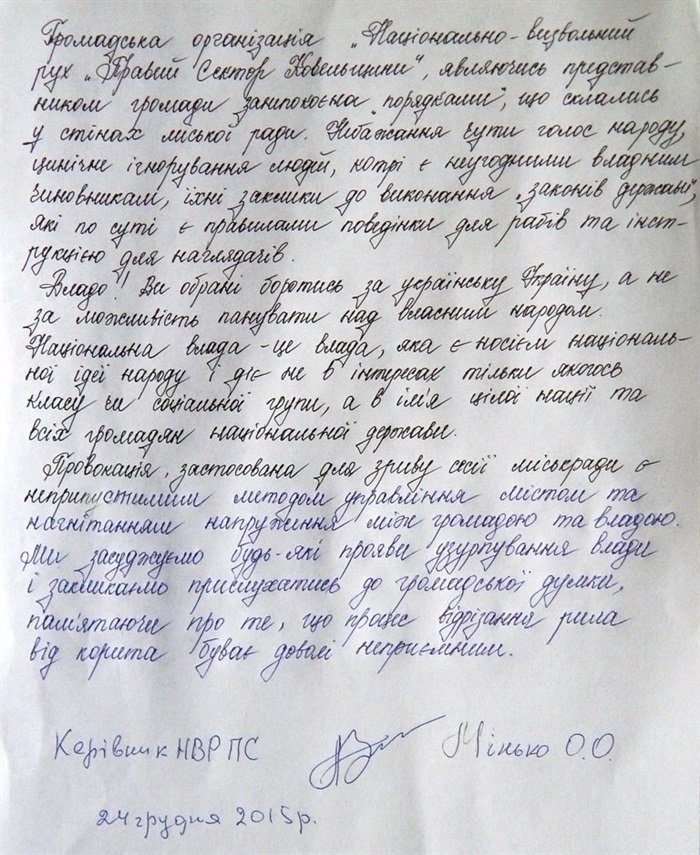 Громадська організація „Національно-визвольний
рух „Правий Сектор Ковельщини", являючись представ-
ником громади занепокоєна „порядками", що склались
у стінах міської ради. Небажання чути голос народу,
цинічне ігнорування людей, котрі є неугодними владним
чиновникам, їхні заклики до виконання „законів держави",
які по суті є правилами поведінки для рабів та інст-
рукцією для наглядачів.
Владо! Ви обрані боротись за українську Україну, а не
за можливість панувати над власним народом.
Національна влада - це влада, яка є носієм національ-
ної ідеї народу і діє не в інтересах тільки якогось
класу чи соціальної групи, а в ім'я цілої нації та
всіх громадян національної держави.
Провокація, застосована для зриву сесії міськради є
неприпустимим методом управління містом та
нагнітанням напруження між громадою та владою.
Ми засуджуємо будь-які прояви узурпування влади
і закликаємо прислухатись до громадської думки,
пам'ятаючи про те, що процес відрізання рила
від корита буває доволі неприємним.
Керівник НВР ПС Мінько О.О.
24 грудня 2015 р.